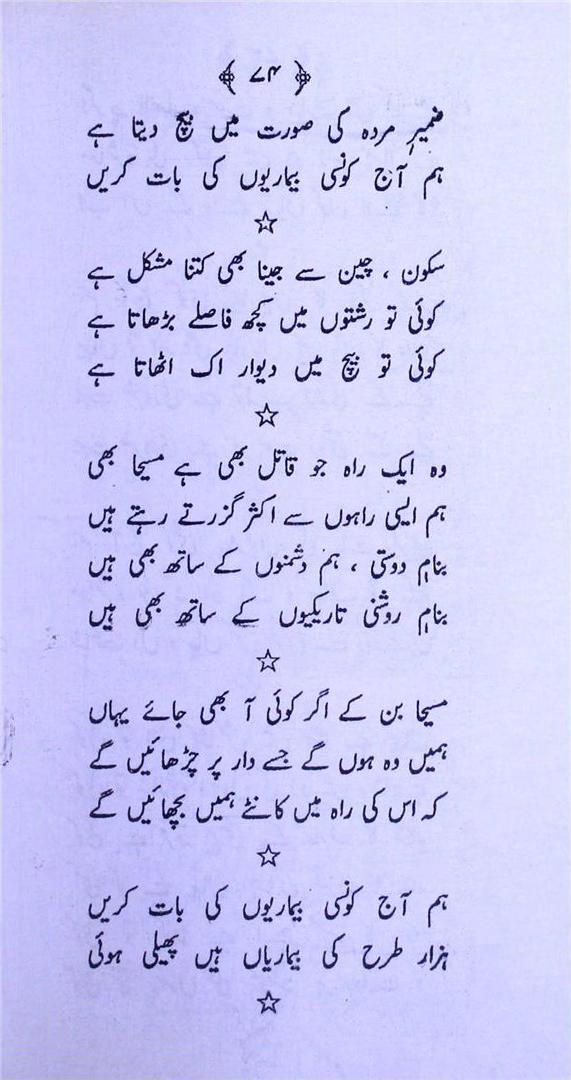 ﴿ ۷۴ ﴾
ضمیرِ مردہ کی صورت میں بیچ دیتا ہے
ہم آج کونسی بیماریوں کی بات کریں
☆
سکون ، چین سے جینا بھی کتنا مشکل ہے
کوئی تو رشتوں میں کچھ فاصلے بڑھاتا ہے
کوئی تو بیچ میں دیوار اک اٹھاتا ہے
☆
وہ ایک راہ جو قاتل بھی ہے مسیحا بھی
ہم ایسی راہوں سے اکثر گزرتے رہتے ہیں
بنامِ دوستی ، ہم دشمنوں کے ساتھ بھی ہیں
بنامِ روشنی تاریکیوں کے ساتھ بھی ہیں
☆
مسیحا بن کے اگر کوئی آ بھی جائے یہاں
ہمیں وہ ہوں گے جسے دار پر چڑھائیں گے
کہ اس کی راہ میں کانٹے ہمیں بچھائیں گے
☆
ہم آج کونسی بیماریوں کی بات کریں
ہزار طرح کی بیماریاں ہیں پھیلی ہوئی
☆